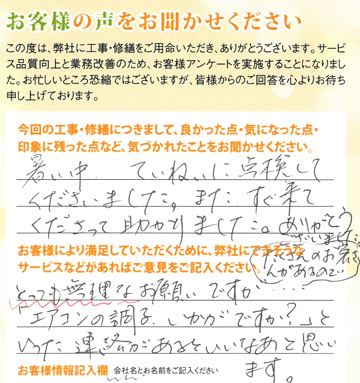 お客様の声をお聞かせください
この度は、弊社に工事・修繕をご用命いただき、ありがとうございます。サービ
ス品質向上と業務改善のため、お客様アンケートを実施することになりまし
た。お忙しいところ恐縮ではございますが、皆様からのご回答を心よりお待ち
申し上げております。
今回の工事・修繕につきまして、良かった点・気になった点・
印象に残った点など、気づかれたことをお聞かせください。
暑い中 ていねいに点検して
くださいました。また すぐ来て
くださって 助かりました。ありがとう
ございました。
お客様により満足していただくために、弊社にできる
サービスなどがあればご意見をご記入ください。
たくさんのお客さ
んがあるので
とっても無理なお願いですが……
「エアコンの調子、いかがですか?」と
いった連絡があるといいなあと思い
ます。
お客様情報記入欄 会社名とお名前をご記入ください